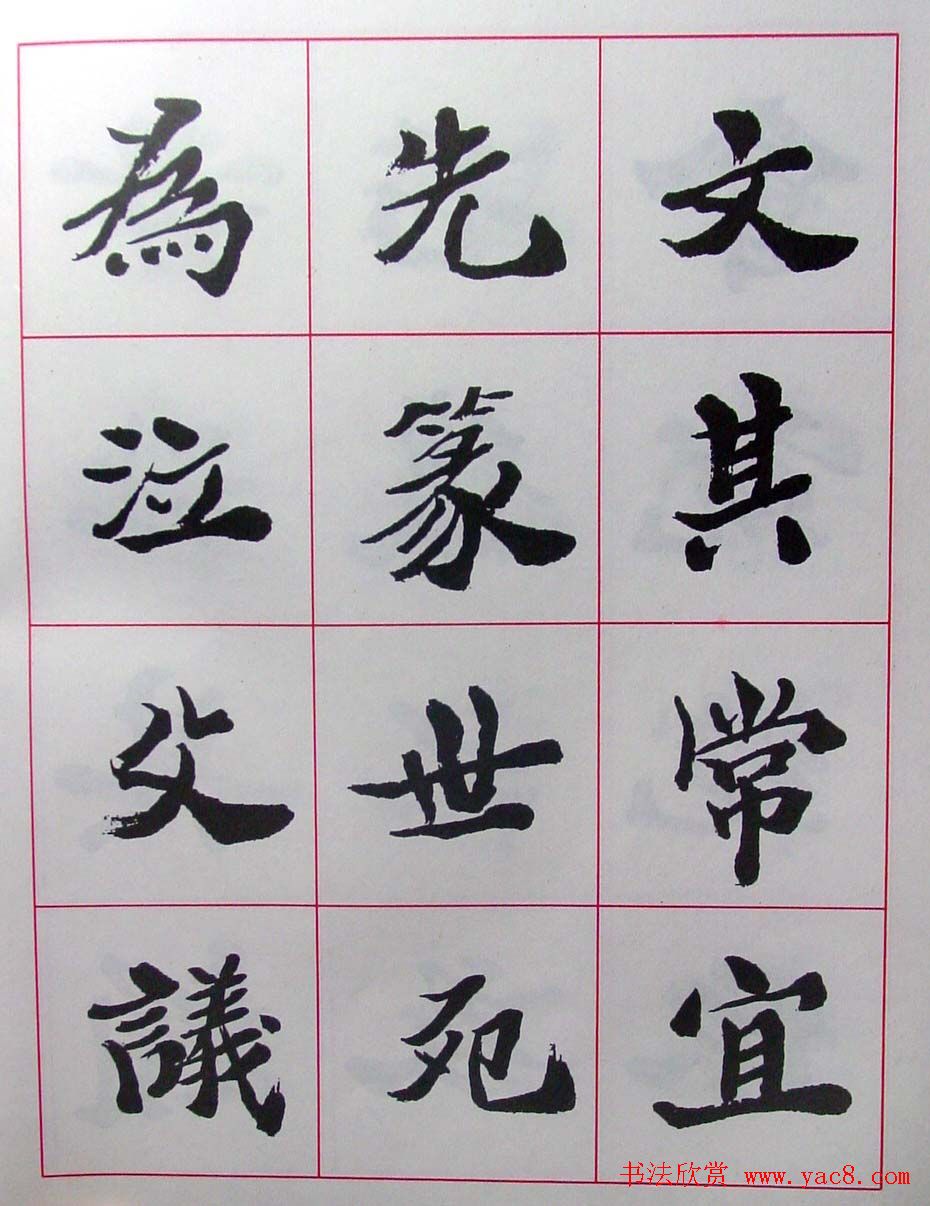 文其常宜
先篆世死
為泣父議
书法欣赏 www.yac8.com